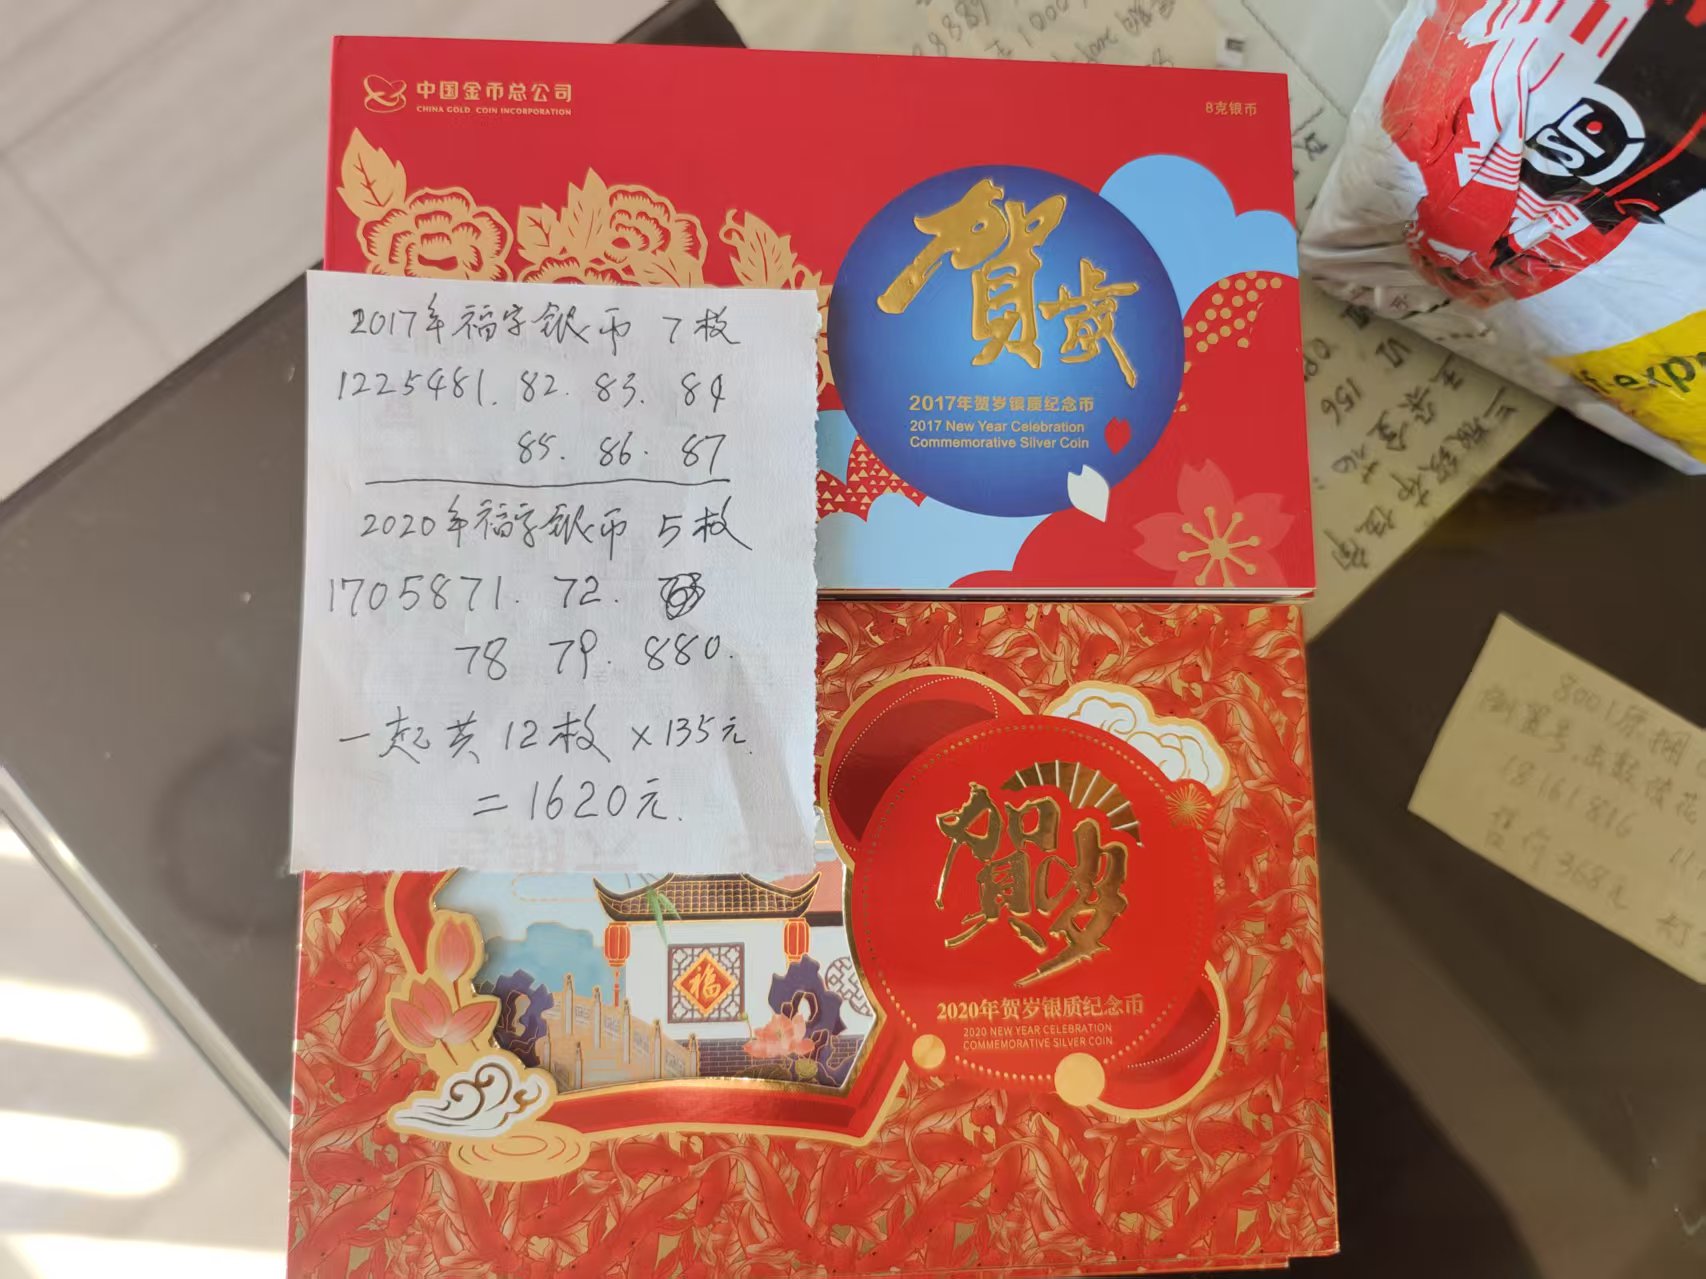 中国金币总公司
CHINA GOLD COIN INCORPORATION
8克银币
賀歲
2017年贺岁银质纪念币
2017 New Year Celebration
Commemorative Silver Coin
2017年福字银币 7枚
1225481. 82. 83. 84
85. 86. 87
2020年福字银币 5枚
1705871. 72.
78 79. 880.
一起共12枚 ×135元
=1620元.
賀岁
2020年贺岁银质纪念币
2020 NEW YEAR CELEBRATION
COMMEMORATIVE SILVER COIN
福
SF
8001原捆
18161816
售价368元